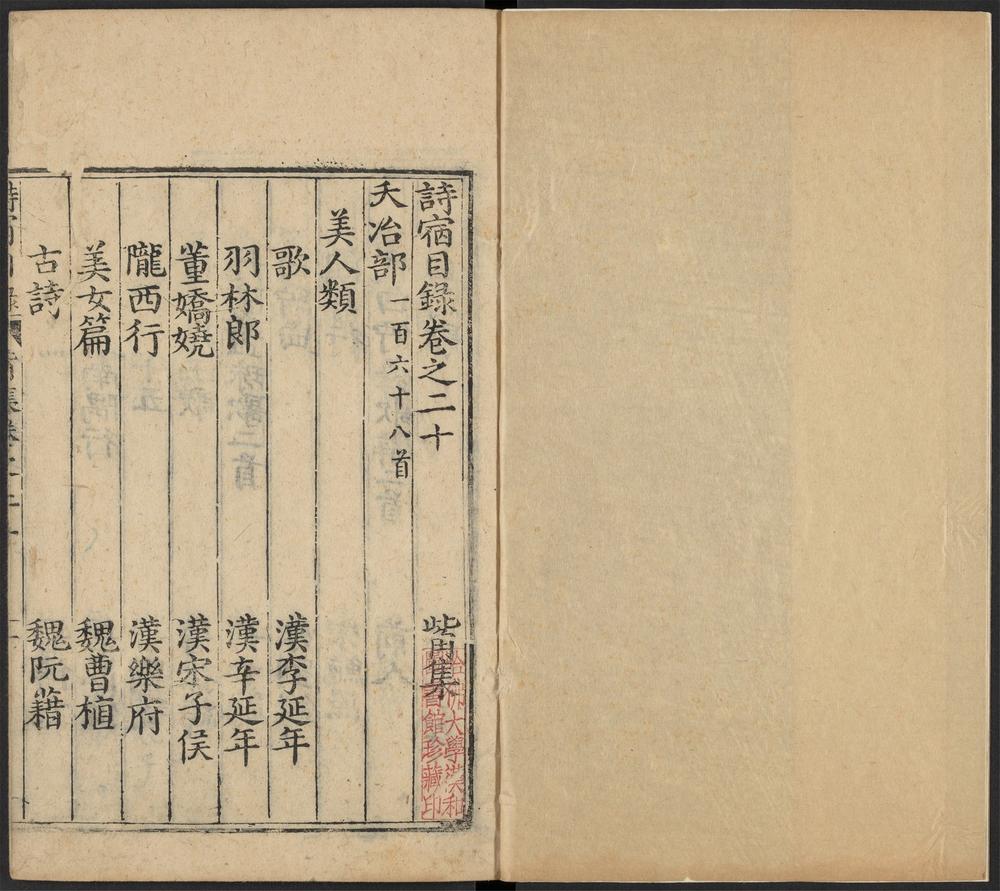 詩宿目錄卷之二十 觜集
夭冶部一百六十八首
美人類
歌 漢李延年
羽林郎 漢辛延年
董嬌嬈 漢宋子侯
隴西行 漢樂府
美女篇 魏曹植
古詩 魏阮藉
哈佛大學漢和
圖書館珍藏印